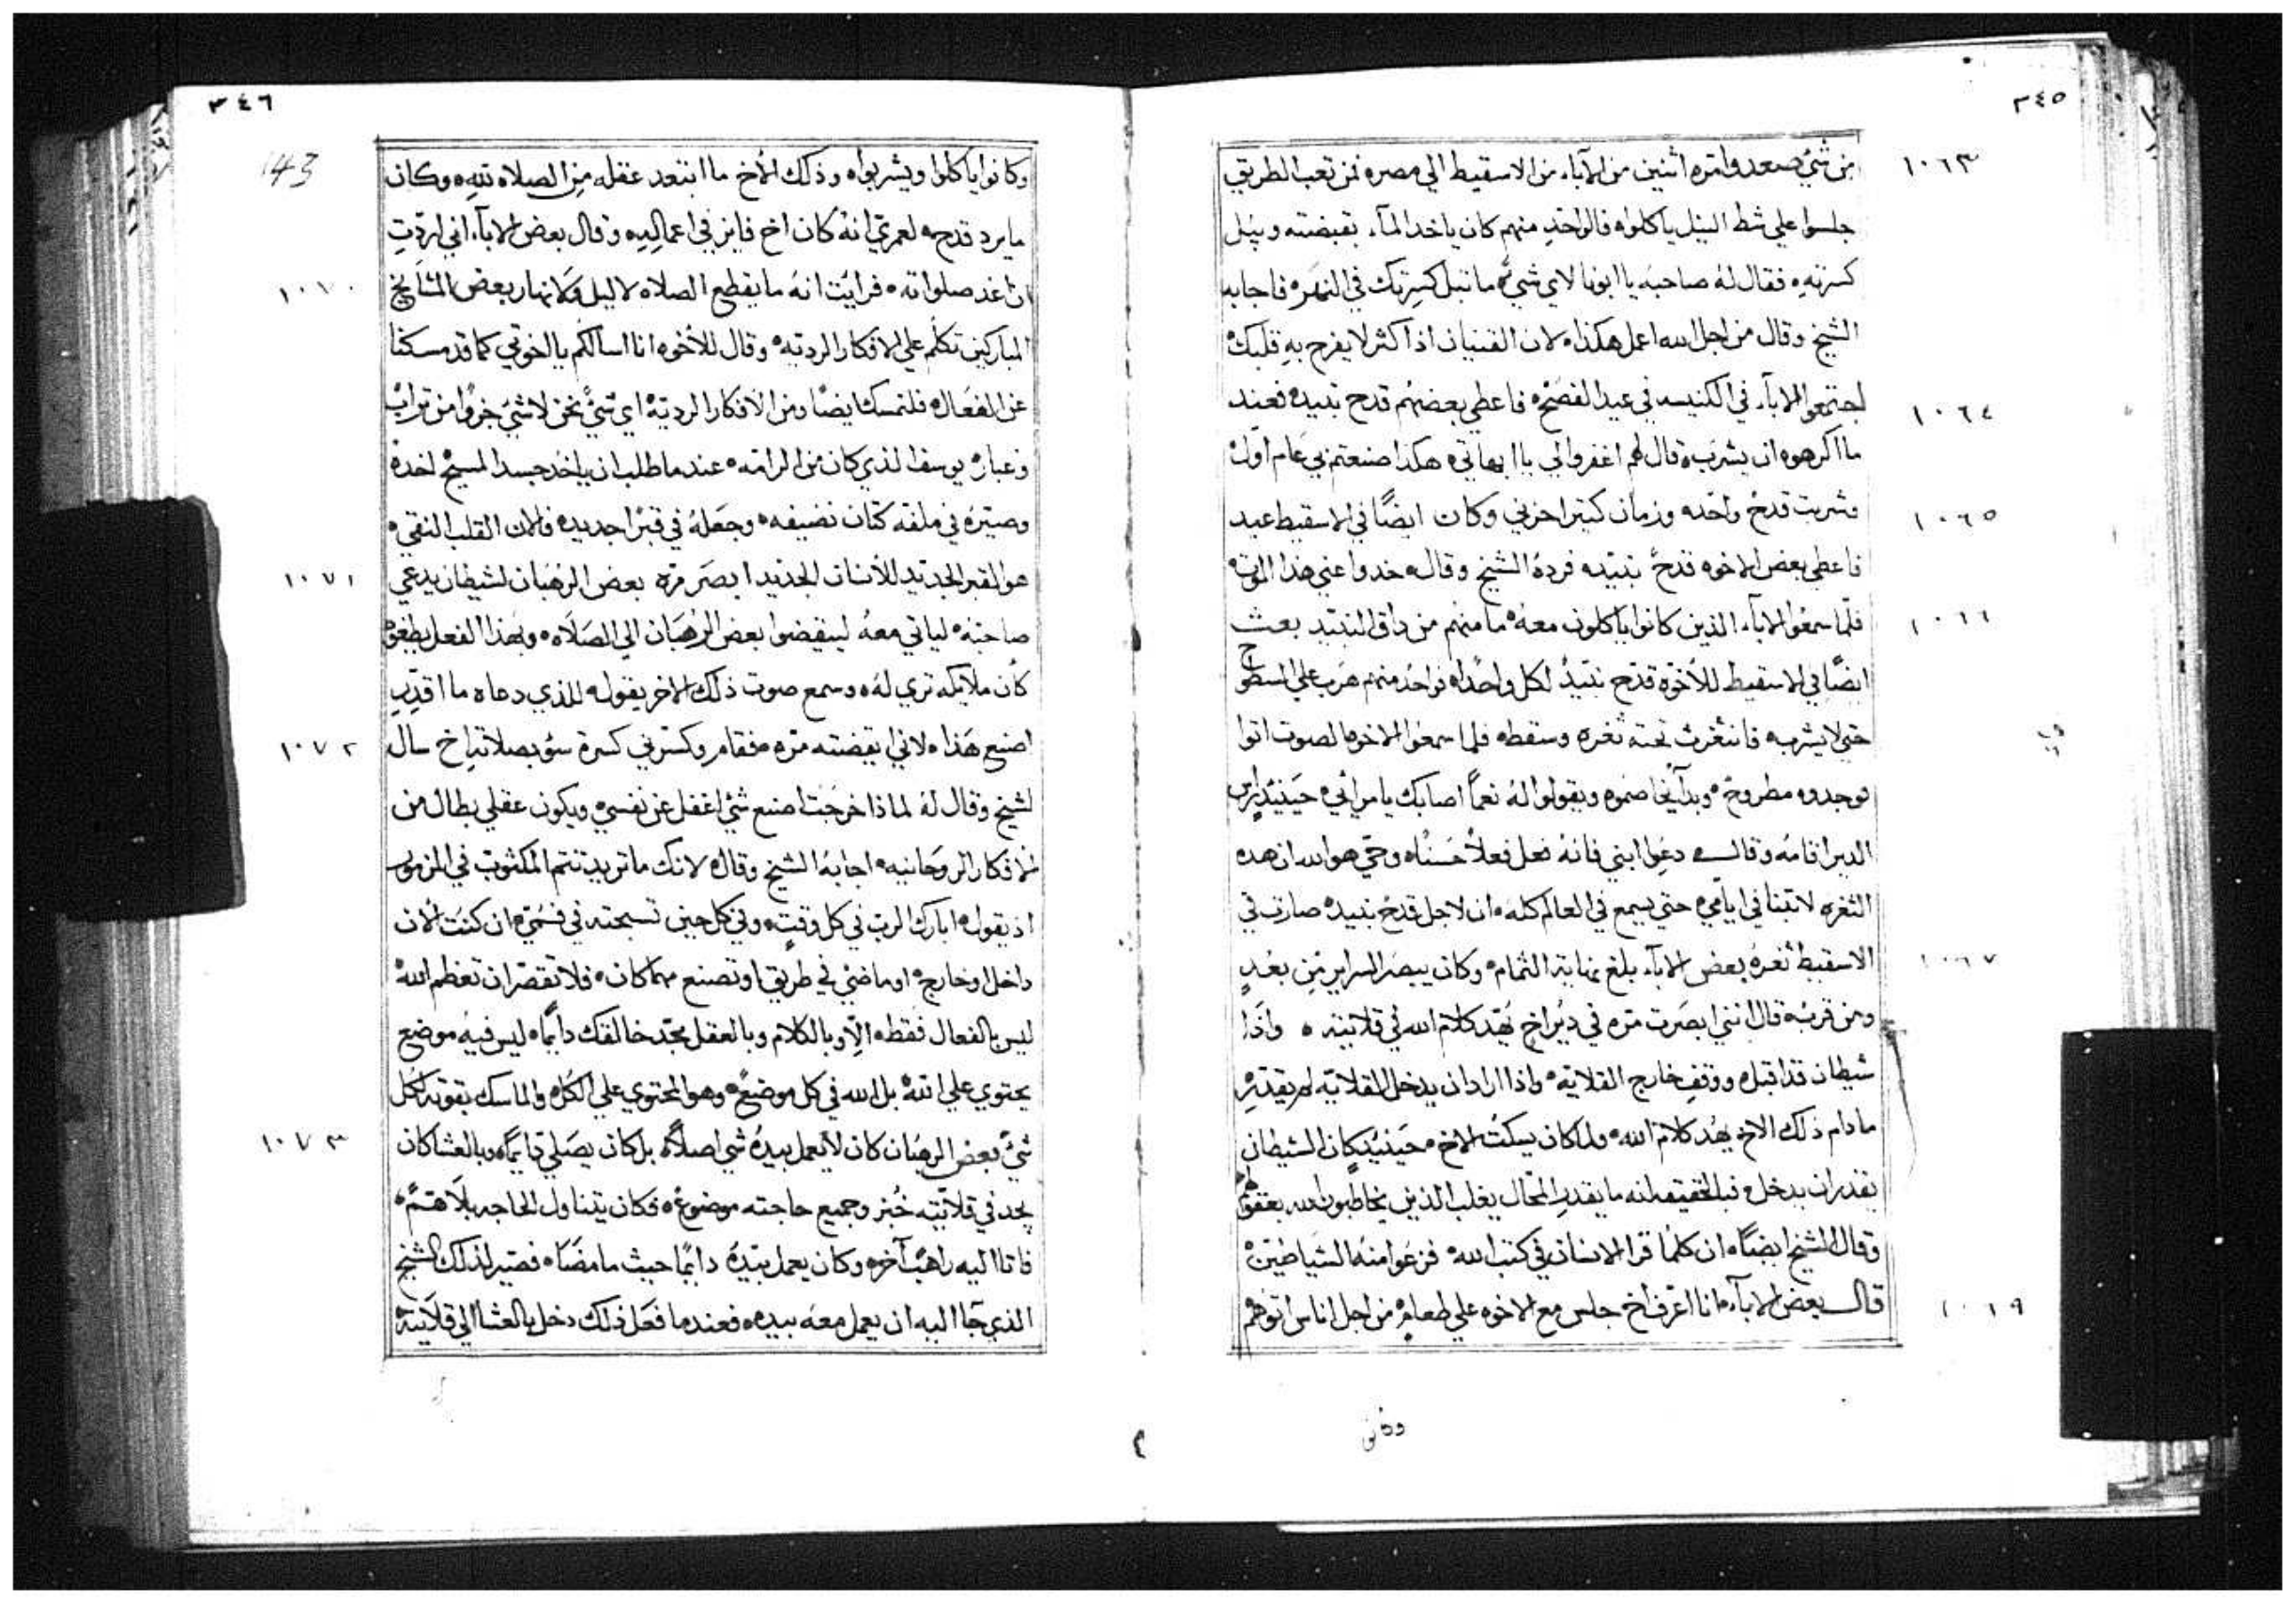 ٣٤٥
١٠٦٣
من شيء صعدوا مره اثنين من الآباء من الاسقيط الي مصره فمن تعب الطريق
جلسوا علي شط النيل ياكلوا فالواحد منهم كان ياخد المآء بقبضته ويبل
كسرته فقال له صاحبه يا ابونا لاي شيء ما تبل كسرتك في النهر فاجابه
الشيخ وقال من اجل الله اعمل هكذا لان القنيان اذا كثر لا يفرح به قلبك
١٠٦٤
اجتمعوا الاباء في الكنيسه في عيد الفصح فاعطي بعضهم قدح نبيد فعند
ما اكرهوه ان يشرب قال لهم اغفروا لي يا ابهاتي هكذا صنعتم بي عام اول
١٠٦٥
وشربت قدح واحد وزمان كتير احزني وكان ايضًا في الاسقيط عيد
فاعطي بعض الاخوه قدح نبيد فرده الشيخ وقال خدوا عني هذا الموت
١٠٦٦
فلما سمعوا الاباء الذين كانوا ياكلون معه ما منهم من داق النبيد بعث
ايضًا في الاسقيط للأخوة قدح نبيد لكل واحد فواحد منهم هرب علي السطوح
حتي لا يشربه فانثغرت تحته ثغره وسقط فلما سمعوا الاخوه الصوت اتوا
فوجدوه مطروح وبدا ايضا ضموه ويقولوا له نعمًا اصابك يا مرائي حينيد ريس
الدير اقامه وقال دعوا ابني فانه فعل فعلاً حسناه وحي هو الله ان هده
الثغره لا تبنا في ايامي حتي يسمع في العالم كله ان لاجل قدح نبيد صارت في
١٠٦٧
الاسقيط ثغره بعض الاباء بلغ نهاية التمام وكان يبصر السراير من بعد
ومن قرب قال انني ابصرت مره في دير اخ يهد كلام الله في قلايته واذا
شيطان قد اقبل ووقف خارج القلاية واذا اراد ان يدخل القلايه لم يقدر
ما دام ذلك الاخ يهد كلام الله ولما كان يسكت الاخ حينيد كان الشيطان
يقدر ان يدخل فبالحقيقه انه ما يقدر المحال يغلب الذين يخاطبون الله بعقولهم
وقال الشيخ ايضًا ان كلما قرا الانسان في كتب الله فزعوا منه الشياطين
١٠٦٩
قال بعض الاباء انا اعرف اخ جلس مع الاخوه علي طعام من اجل اناس اتوهم
وكانوا
٣٤٦
143
وكانوا ياكلوا ويشربوا وذلك الأخ ما ابتعد عقله من الصلاه لله وكان
ما يرد قدح لعمري انه كان اخ فايز في اعماله وقال بعض الاباء اني اردت
١٠٧٠
ان اعد صلواته فرايت انه ما يقطع الصلاه لا ليل ولا نهار بعض المشايخ
المباركين تكلم علي الافكار الرديه وقال للأخوه انا اسالكم يا اخوتي كما قد مسكنا
عن الفعال فلنمسك ايضًا ومن الافكار الردية اي شيء نحن لا شيء جزوًا من تراب
وغبار يوسف الذي كان من الرامه عند ما طلب ان ياخد جسد المسيح اخده
وصيره في ملفة كتان نضيفه وجعله في قبرًا جديد فالان القلب النقي
١٠٧١
هو القبر الجديد للأنسان الجديد ابصر مره بعض الرهبان لشيطان يدعي
صاحبه لياتي معه لينهضوا بعض الرهبان الي الصلاه وبهذا الفعل يطغوه
كان ملايكه تري له وسمع صوت ذلك الاخر يقول للذي دعاه ما اقدر
١٠٧٢
اصنع هذا لاني ايقضته مره فقام وكسرني كسرة سو بصلاته اخ سال
لشيخ وقال له لماذا خرجت اصنع شي اغفل عن نفسي ويكون عقلي بطال من
الافكار الروحانيه اجابه الشيخ وقال لانك ما تريد تتم المكتوب في المزمور
اذ يقول ابارك الرب في كل وقت وفي كل حين تسبحته في فمي ان كنت الان
داخل او خارج او ماضي في طريق او تصنع مهما كان فلا تقصر ان تعظم الله
ليس بالفعال فقط الا وبالكلام وبالعقل مجد خالقك دايمًا ليس فيه موضع
يحتوي علي الله بل الله في كل موضع وهو المحتوي علي الكل والماسك بقوته كل
١٠٧٣
شيء بعض الرهبان كان لا يعمل بيده شي اصلاً بل كان يصلي دايمًا وبالعشا كان
يجد في قلايته خبز وجميع حاجته موضوع فكان يتناول الحاجه بلا هم
فاتا اليه راهب آخر وكان يعمل بيده دايمًا حيث ما مضا فصير لذلك الشيخ
الذي جا اليه ان يعمل معه بيده فعند ما فعل ذلك دخل بالعشا الي قلايته